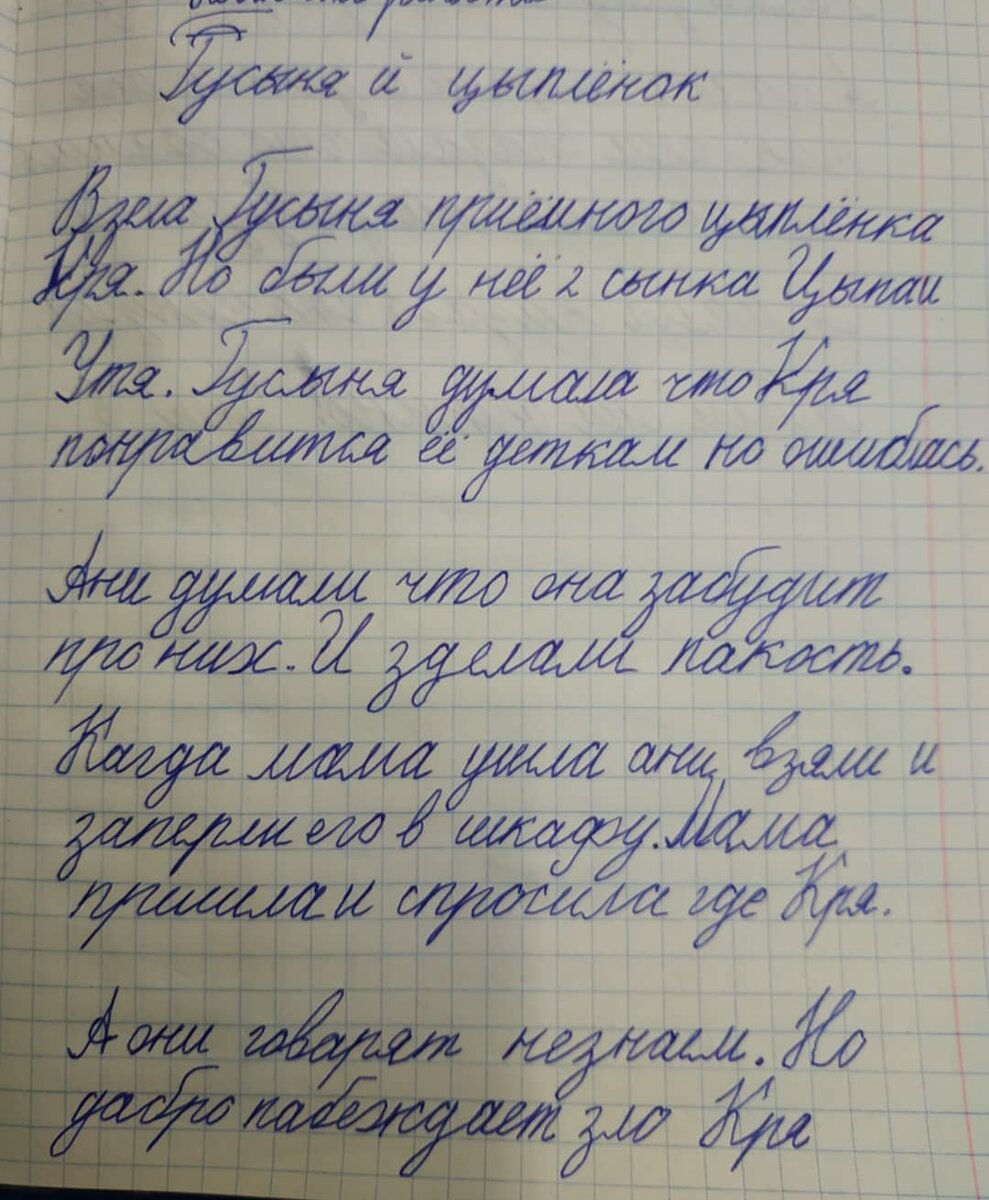 Гусыня и цыплёнок
Взела Гусыня приёмного цыплёнка
Кря. Но были у неё 2 сынка Цыпа и
Утя. Гусыня думала что Кря
понравится её деткам но ошиблась.
Ани думали что она забудит
про них. И зделали пакость.
Кагда мама ушла ани взяли и
заперли его в шкафу. Мама
пришила и спросила где Кря.
А они говарят незнаем. Но
дабро пабеждает зло Кря